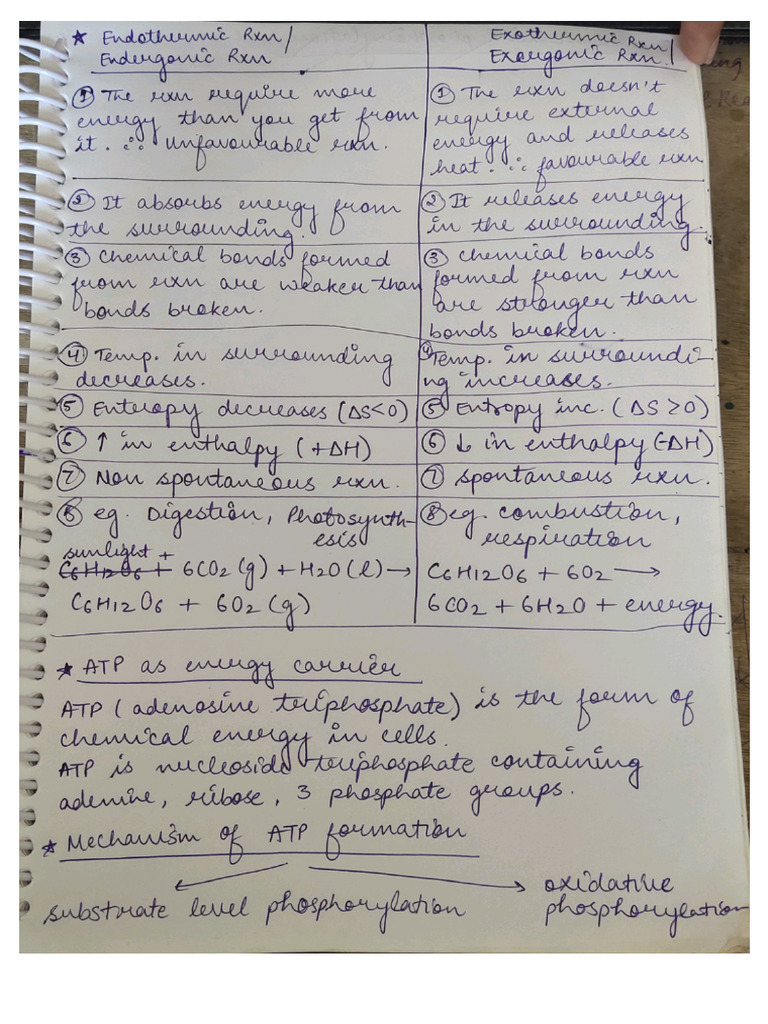 ★ Endothermic Rxn/
Endergonic Rxn
① The rxn require more
energy than you get from
it. ∴ Unfavourable rxn.
② It absorbs energy from
the surrounding.
③ Chemical bonds formed
from rxn are weaker than
bonds broken.
④ Temp. in surrounding
decreases.
⑤ Enteropy decreases (ΔS<0)
⑥ ↑ in enthalpy (+ΔH)
⑦ Non spontaneous rxn.
⑧ eg. Digestion, Photosynth-
esis
sunlight +
C6H12O6 + 6CO2 (g) + H2O (l) →
C6H12O6 + 6O2 (g)
Exothermic Rxn/
Exergonic Rxn.
① The rxn doesn't
require external
energy and releases
heat. ∴ favourable rxn
② It releases energy
in the surrounding.
③ Chemical bonds
formed from rxn
are stronger than
bonds broken.
④ Temp. in surroundi-
ng increases.
⑤ Entropy inc. (ΔS>0)
⑥ ↓ in enthalpy (-ΔH)
⑦ spontaneous rxn.
⑧ eg. combustion,
respiration
C6H12O6 + 6O2 →
6CO2 + 6H2O + energy.
★ ATP as energy carrier
ATP (adenosine triphosphate) is the form of
chemical energy in cells.
ATP is nucleoside triphosphate containing
adenine, ribose, 3 phosphate groups.
★ Mechanism of ATP formation
substrate level phosphorylation
oxidative
phosphorylation